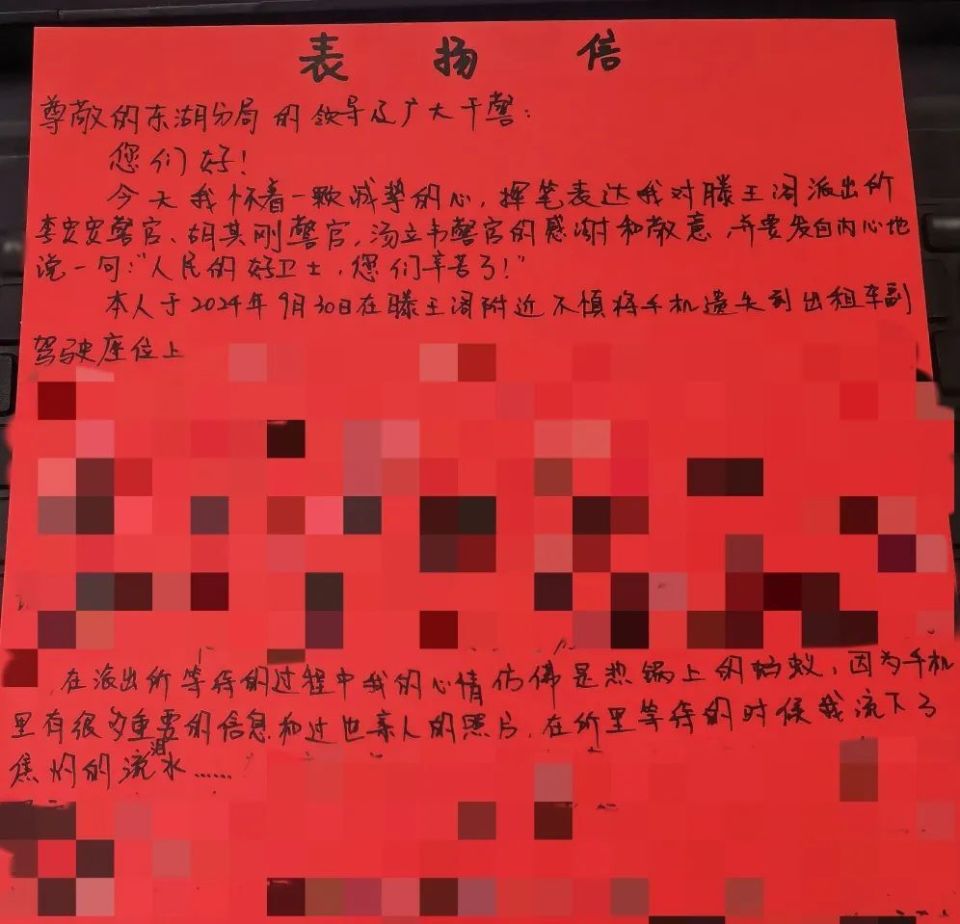 表扬信
尊敬的东湖分局的领导及广大干警：
您们好！
今天我怀着一颗诚挚的心，挥笔表达我对滕王阁派出所
李安安警官、胡其刚警官，汤立韦警官的感谢和敬意，并要发自内心地
说一句：“人民的好卫士，您们辛苦了！”
本人于2024年9月30日在滕王阁附近不慎将手机遗失到出租车副
驾驶座位上
在派出所等待的过程中我的心情仿佛是热锅上的蚂蚁，因为手机
里有很多重要的信息和过世亲人的照片，在所里等待的时候我流下了
焦灼的泪水……